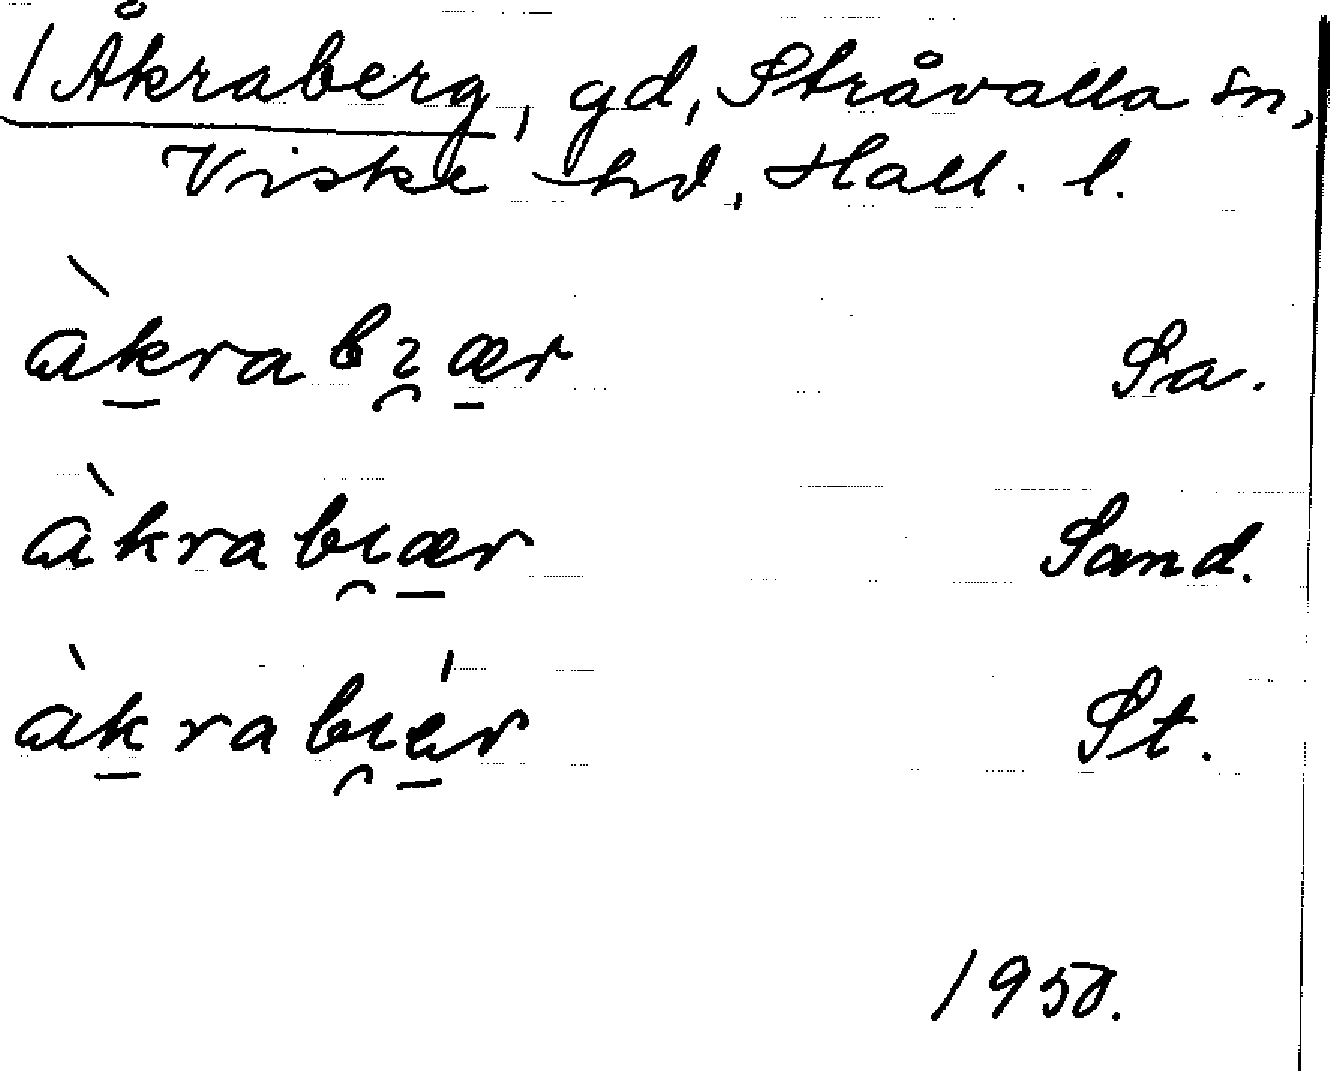 1 Åkraberg, gd, Stråvalla sn,
Viske hd, Hall. l.
àkrabɿ̯ær Sa.
àkrabɩ̯ær Sand.
àkrabɩ̯ér St.
1950.